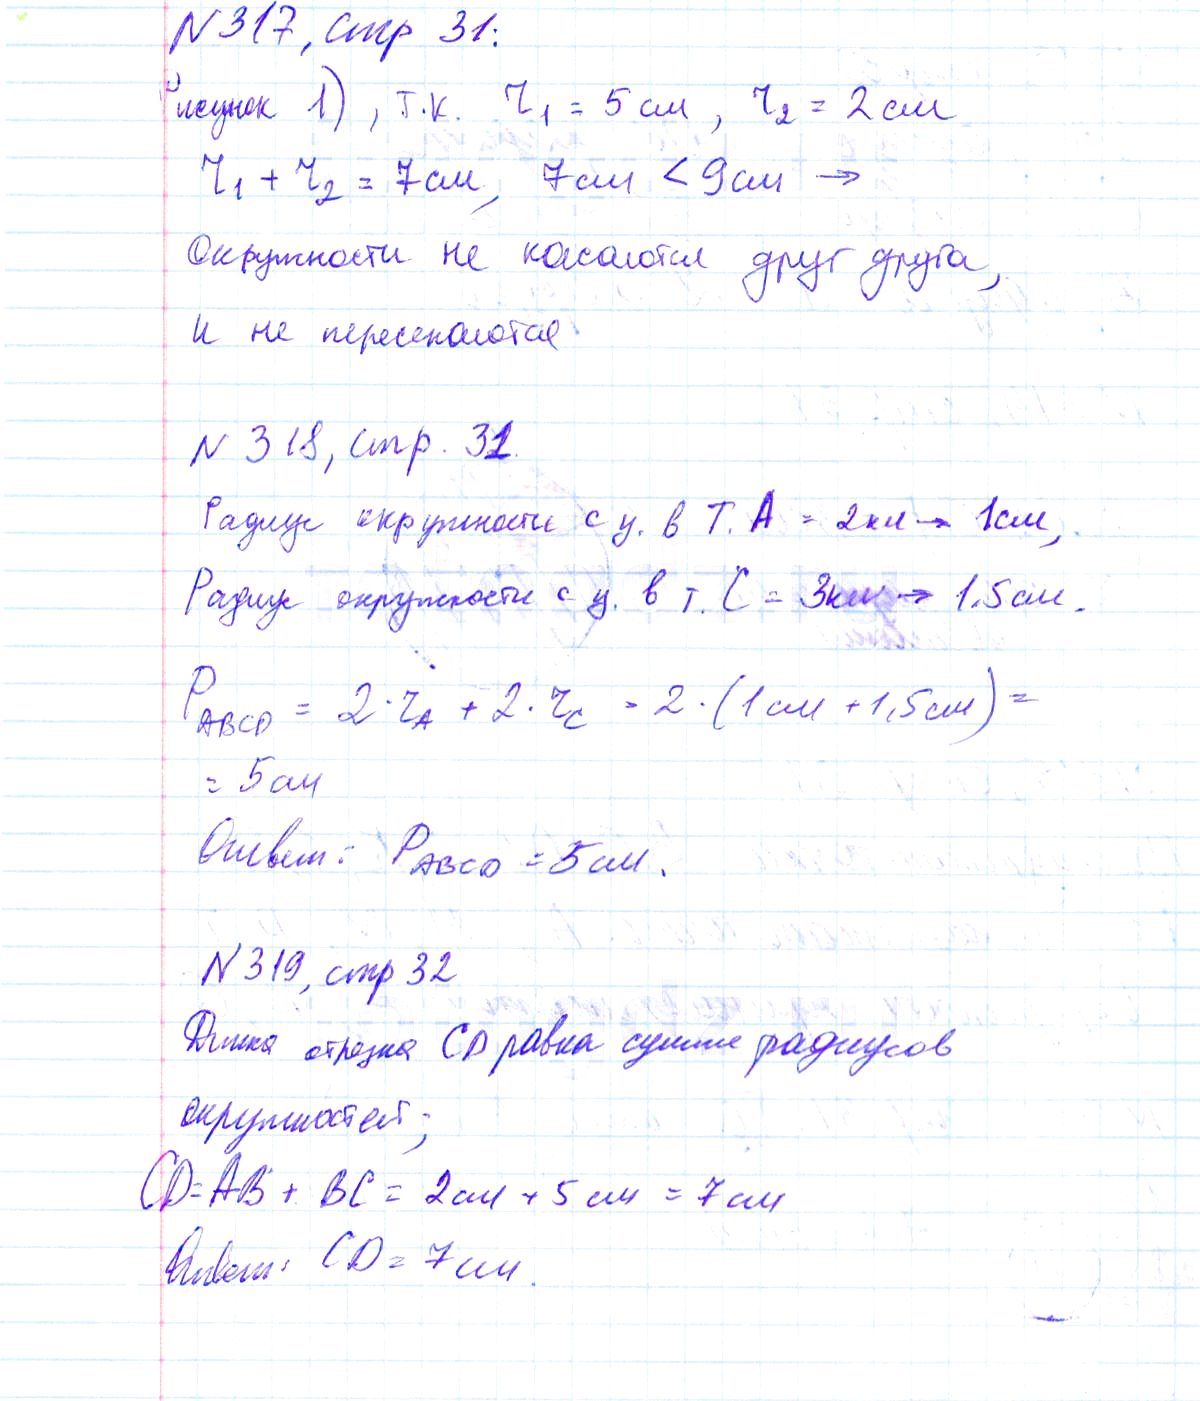 N 317, стр 31:
Рисунок 1), т.к. r₁ = 5 см, r₂ = 2 см
r₁ + r₂ = 7 см, 7 см < 9 см →
Окружности не касаются друг друга,
и не пересекаются
N 318, стр. 31.
Радиус окружности с ц. в т. A = 2км → 1 см,
Радиус окружности с ц. в т. C = 3км → 1,5 см.
P_ABCD = 2 · r_A + 2 · r_C = 2 · (1 см + 1,5 см) =
= 5 см
Ответ: P_ABCD = 5 см.
N 319, стр 32
Длина отрезка CD равна сумме радиусов
окружностей;
CD = AB + BC = 2 см + 5 см = 7 см
Ответ: CD = 7 см.